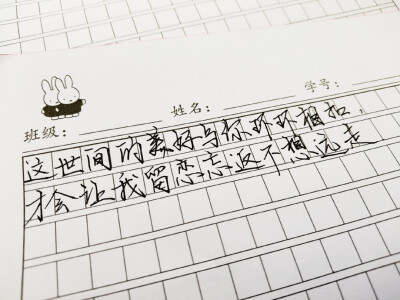 班级： 姓名： 学号：
这世间的美好与你环环相扣，
才会让我留恋忘返不想远走